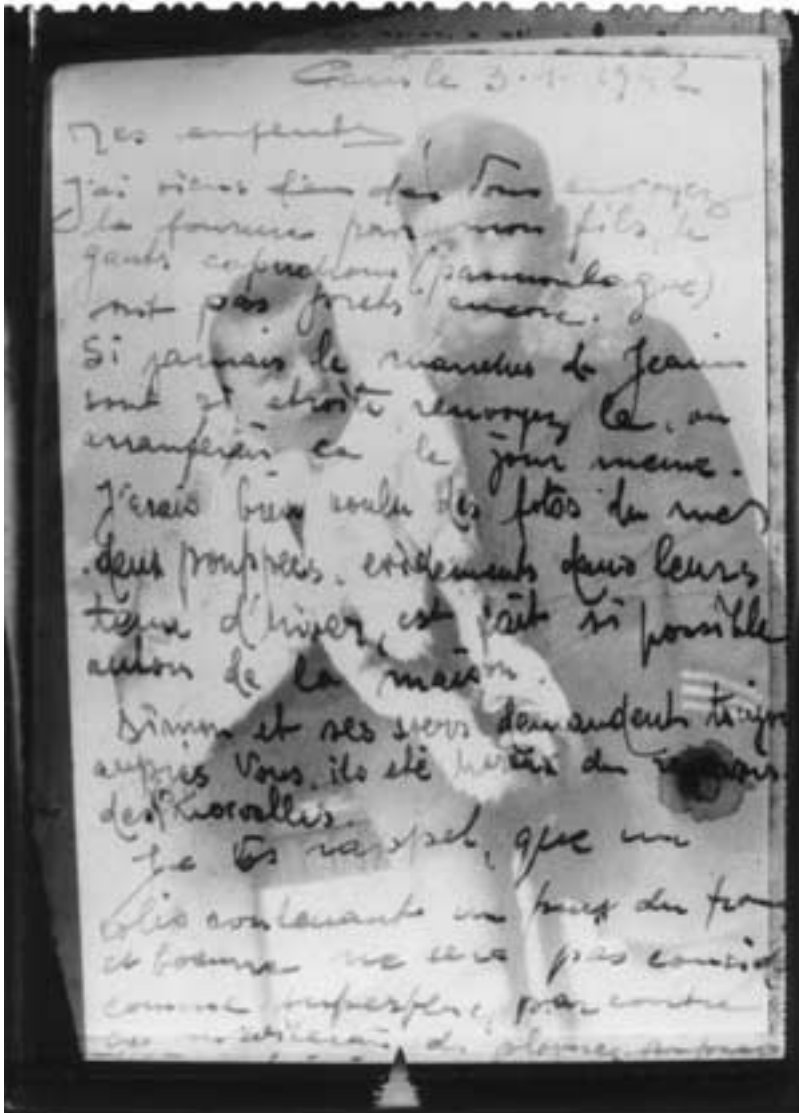 Paris le 3.1.1942
Mes enfents
J'ai viens des Vous envoyez
la fourrure pour mon fils, le
gants capuchons (passmontagne)
sont pas prets encore.
Si jamais le manches de Jeanin
sont si etroite renvoyez la, on
arrangerais ca le jour meme.
J'erais bien voulu des fotos de mes
deux pouppées. evidements dans leurs
tenue d'hiver, est fait si possible
autour de la maison.
Simon et ses sœrs demandent toujours
auprès Vous, ils eté
des
Je Vs rappel, que un
colis contenants un du
et ne sera pas
comme par contre